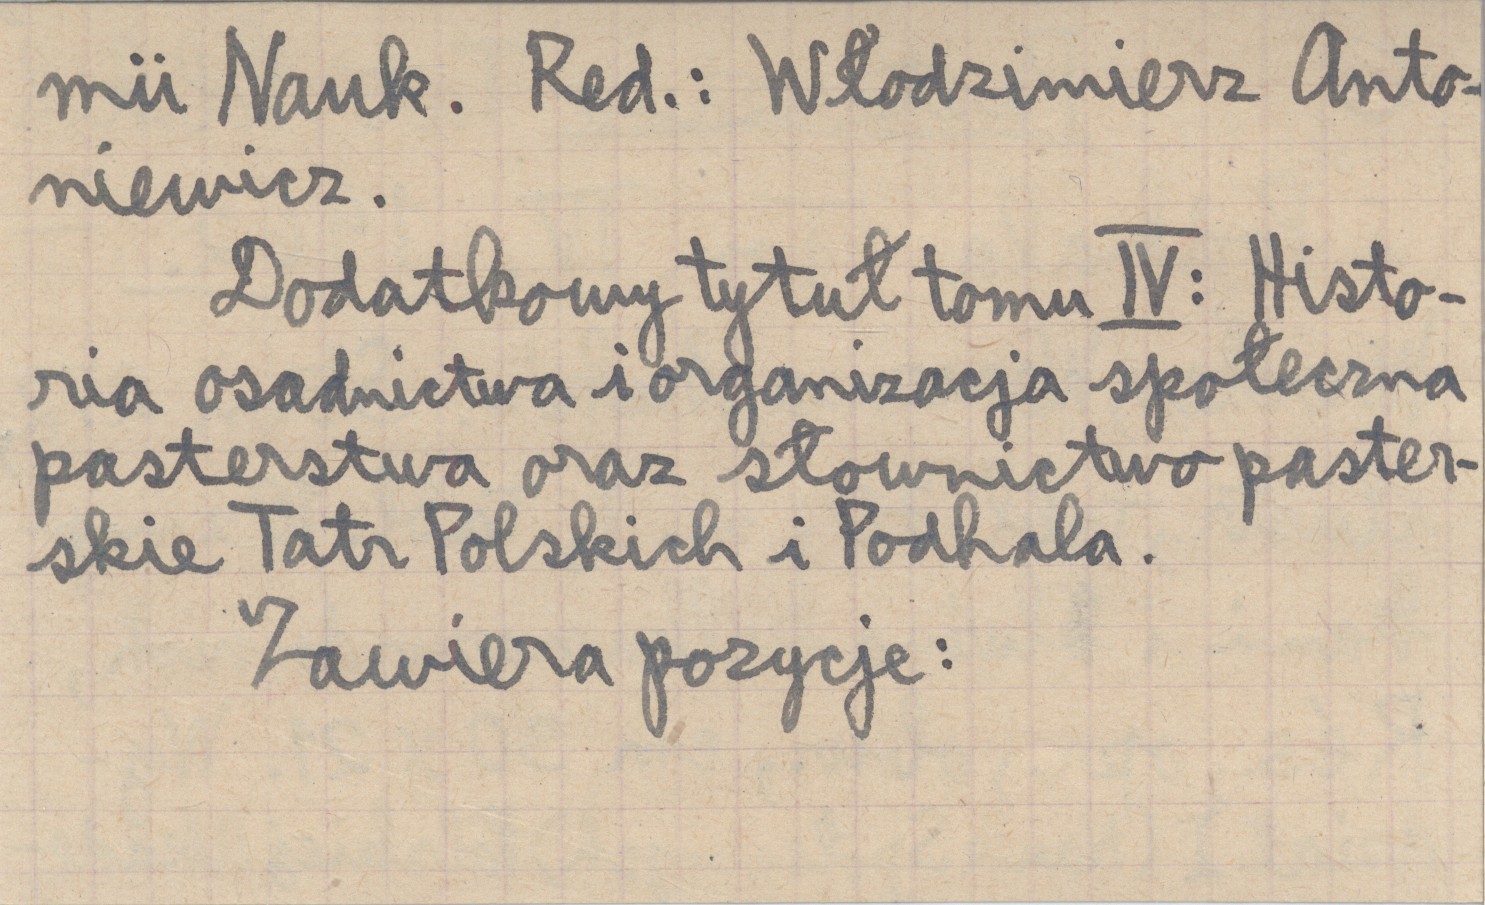 mii Nauk. Red.: Włodzimierz Anto-
niewicz.
Dodatkowy tytuł tomu IV: Histo-
ria osadnictwa i organizacja społeczna
pasterstwa oraz słownictwo paster-
skie Tatr Polskich i Podhala.
Zawiera pozycje: